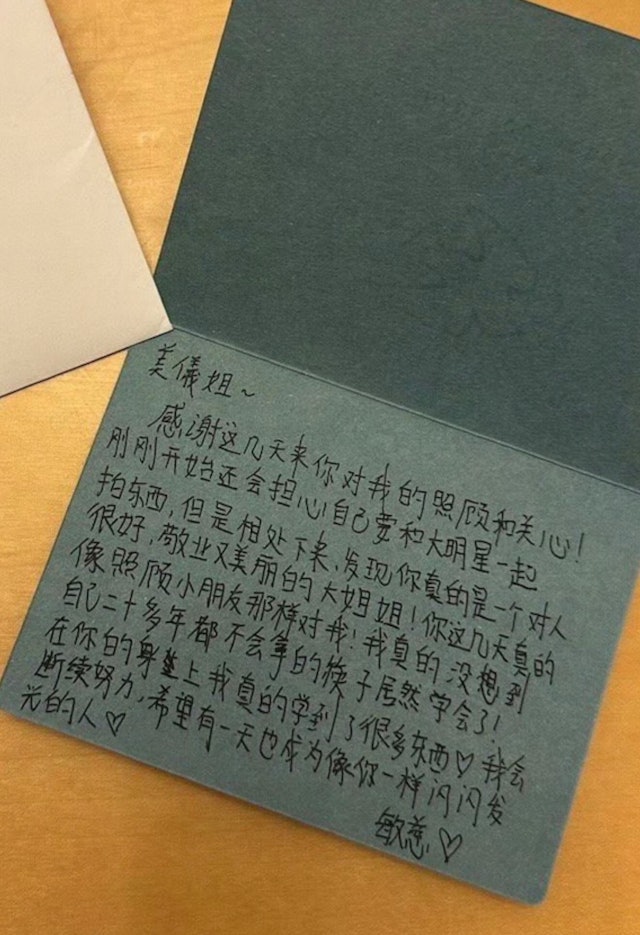 美儀姐~
感谢这几天来你对我的照顾和关心!
刚刚开始还会担心自己要和大明星一起
拍东西,但是相处下来,发现你真的是一个对人
很好,敬业又美丽的大姐姐!你这几天真的
像照顾小朋友那样对我!我真的没想到
自己二十多年都不会拿的筷子居然学会了!
在你的身上我真的学到了很多东西♡我会
断续努力,希望有一天也成为像你一样闪闪发
光的人♡
敏慈♡